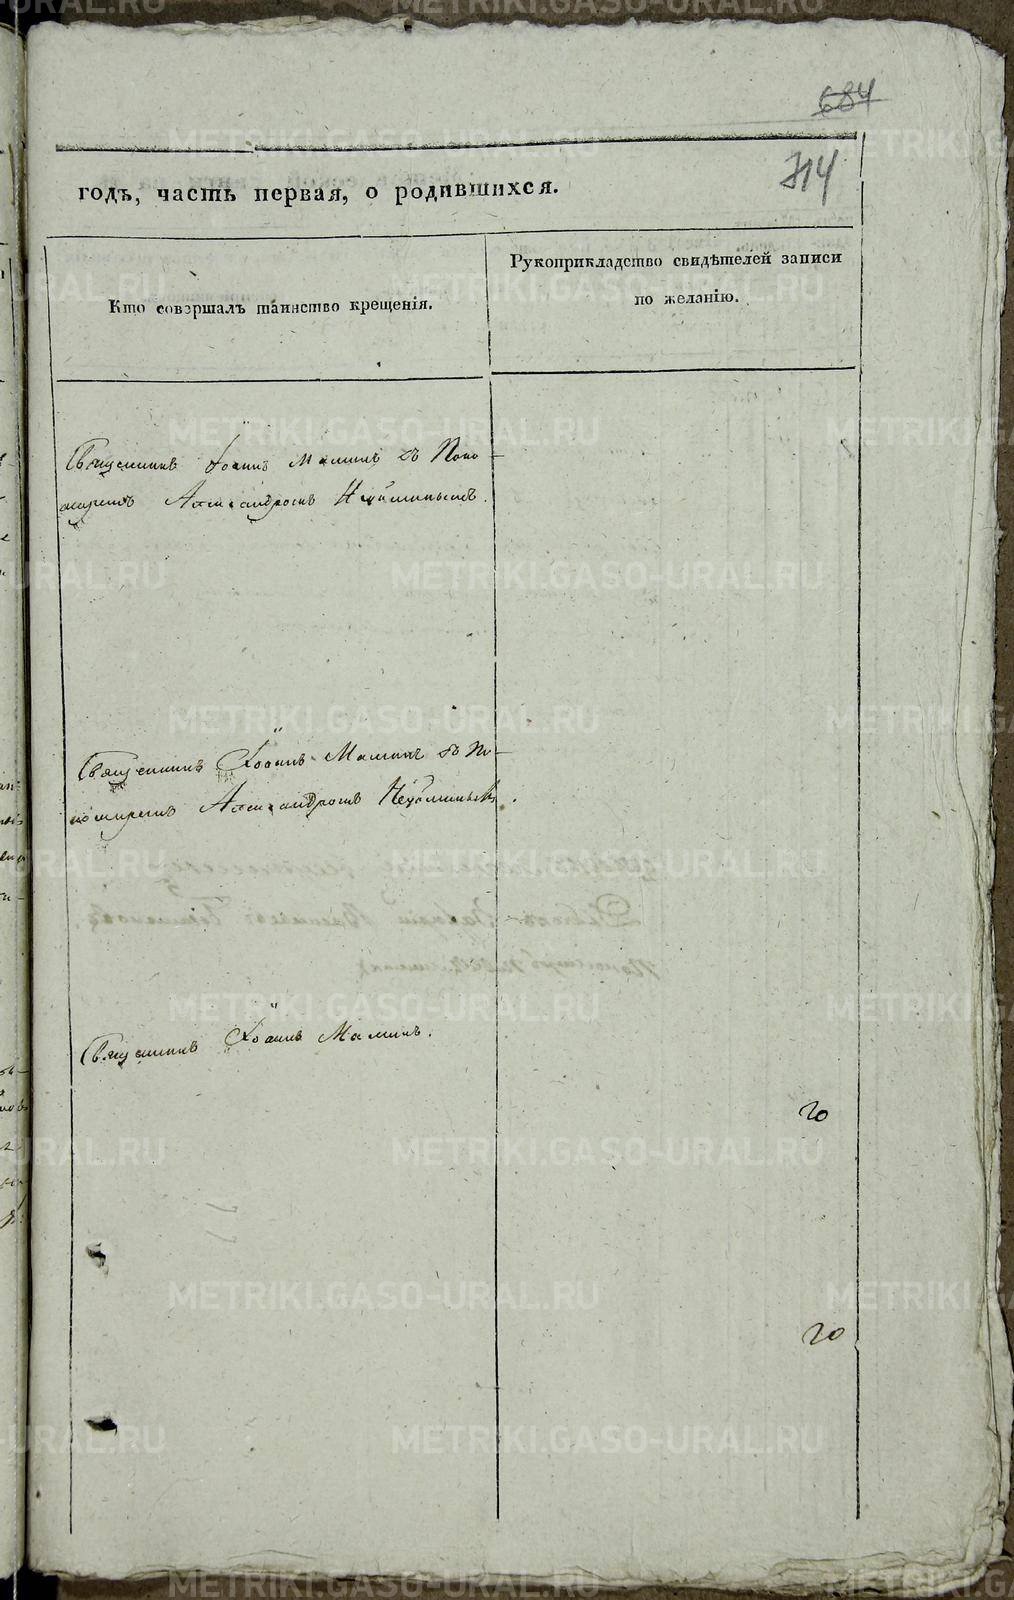 684
714
годъ, часть первая, о родившихся.
Кто совэршалъ таинство крещенія.
Рукоприкладство свидѣтелей записи
по желанію.
Священникъ Іоаннъ Малинъ съ Поно-
маремъ Александромъ
Священникъ Іоаннъ Малинъ съ По-
номаремъ Александромъ
Священникъ Іоаннъ Малинъ.
20
20
METRIKI.GASO-URAL.RU